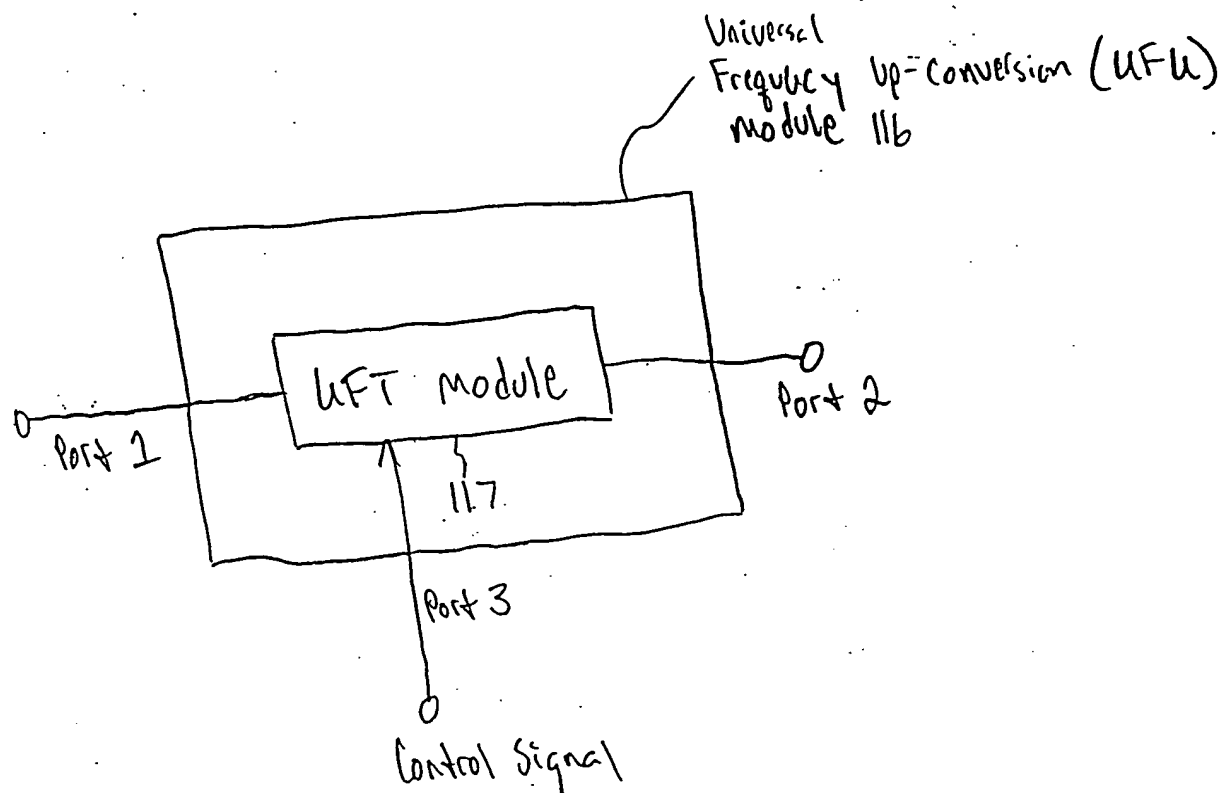 Universal
Frequecy Up-Conversion (UFU)
Module 116
UFT Module
Port 1
Port 2
117
Port 3
Control Signal